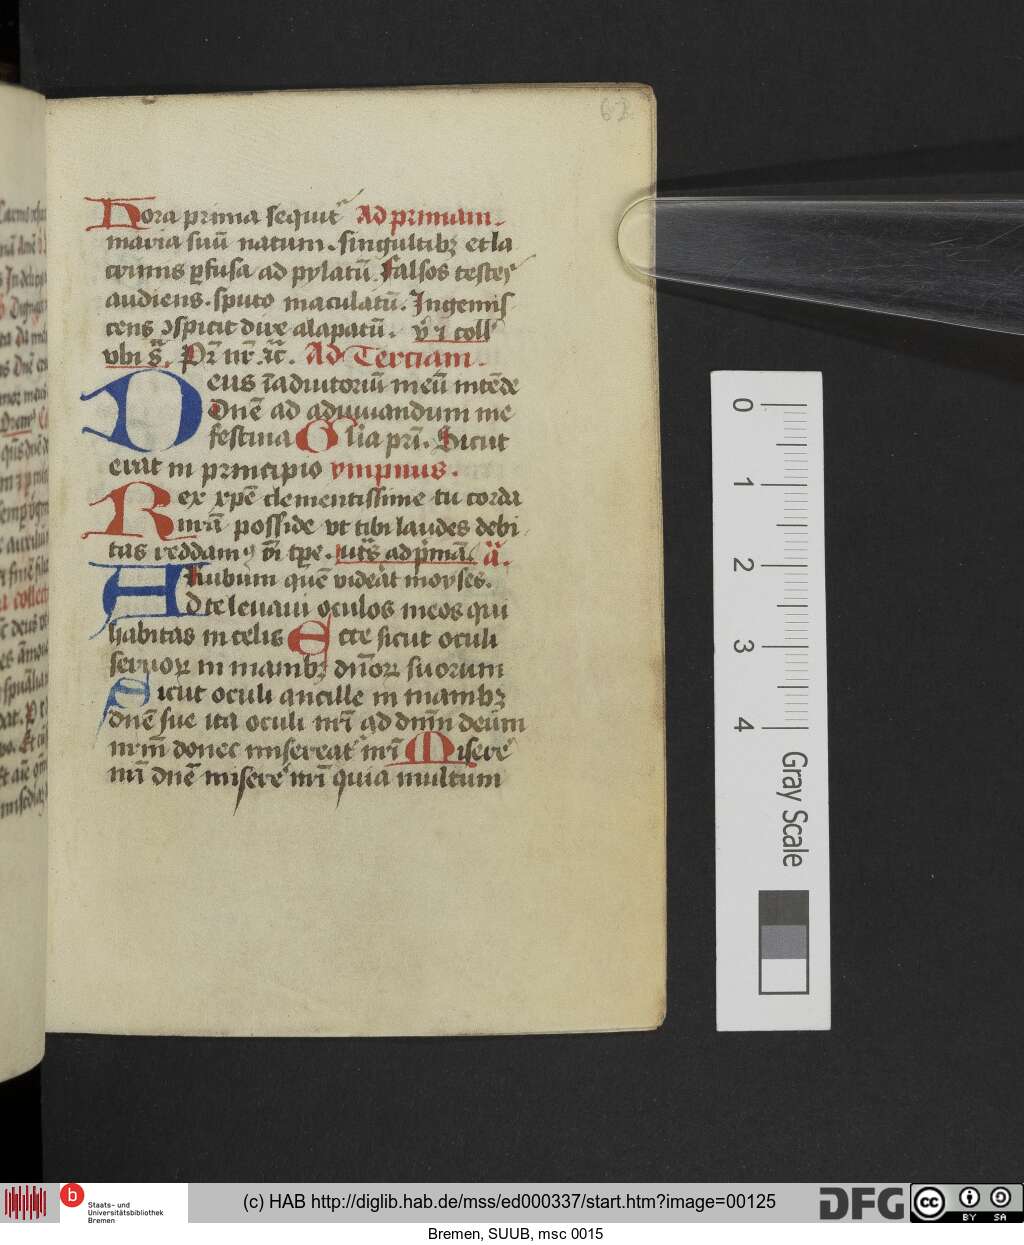 63
Hora prima sequit᷑ Ad primam.
maria suū natum. singultibꝫ et la
crimis ꝑfusa ad pylatū. falsos testes
audiens. sputo maculatū. Ingemis
cens ɔspicit dire alapatū. v̄ ⁊ coll
vbi sᷓ. Pr̄ nr̄. ⁊c̄. Ad Terciam.
Deus ī adiutoriū meū intēde
Dnē ad adiuuandum me
festina Glīa pr̄i. Sicut
erat in principio ympnus.
Rex xp̄e clementissime tu corda
nr̄a posside vt tibi laudes debi
tas reddamꝰ oī tp̄e. ut sᷓ ad pͥmā. aͣ.
Rubum quē viderat moyses.
Ad te leuaui oculos meos qui
habitas in celis Ecce sicut oculi
seruoꝝ in manibꝫ dn̄oꝝ suorum
Sicut oculi ancille in manibꝫ
dnē sue ita oculi nr̄i ad dnm̄ deūm
nr̄m donec misereat᷑ nr̄i Misere᷑
nr̄i dnē misere᷑ nr̄i quia multum
0
1
2
3
4
Gray Scale
b
Staats- und
Universitätsbibliothek
Bremen
(c) HAB http://diglib.hab.de/mss/ed000337/start.htm?image=00125
DFG
cc BY SA
Bremen, SUUB, msc 0015